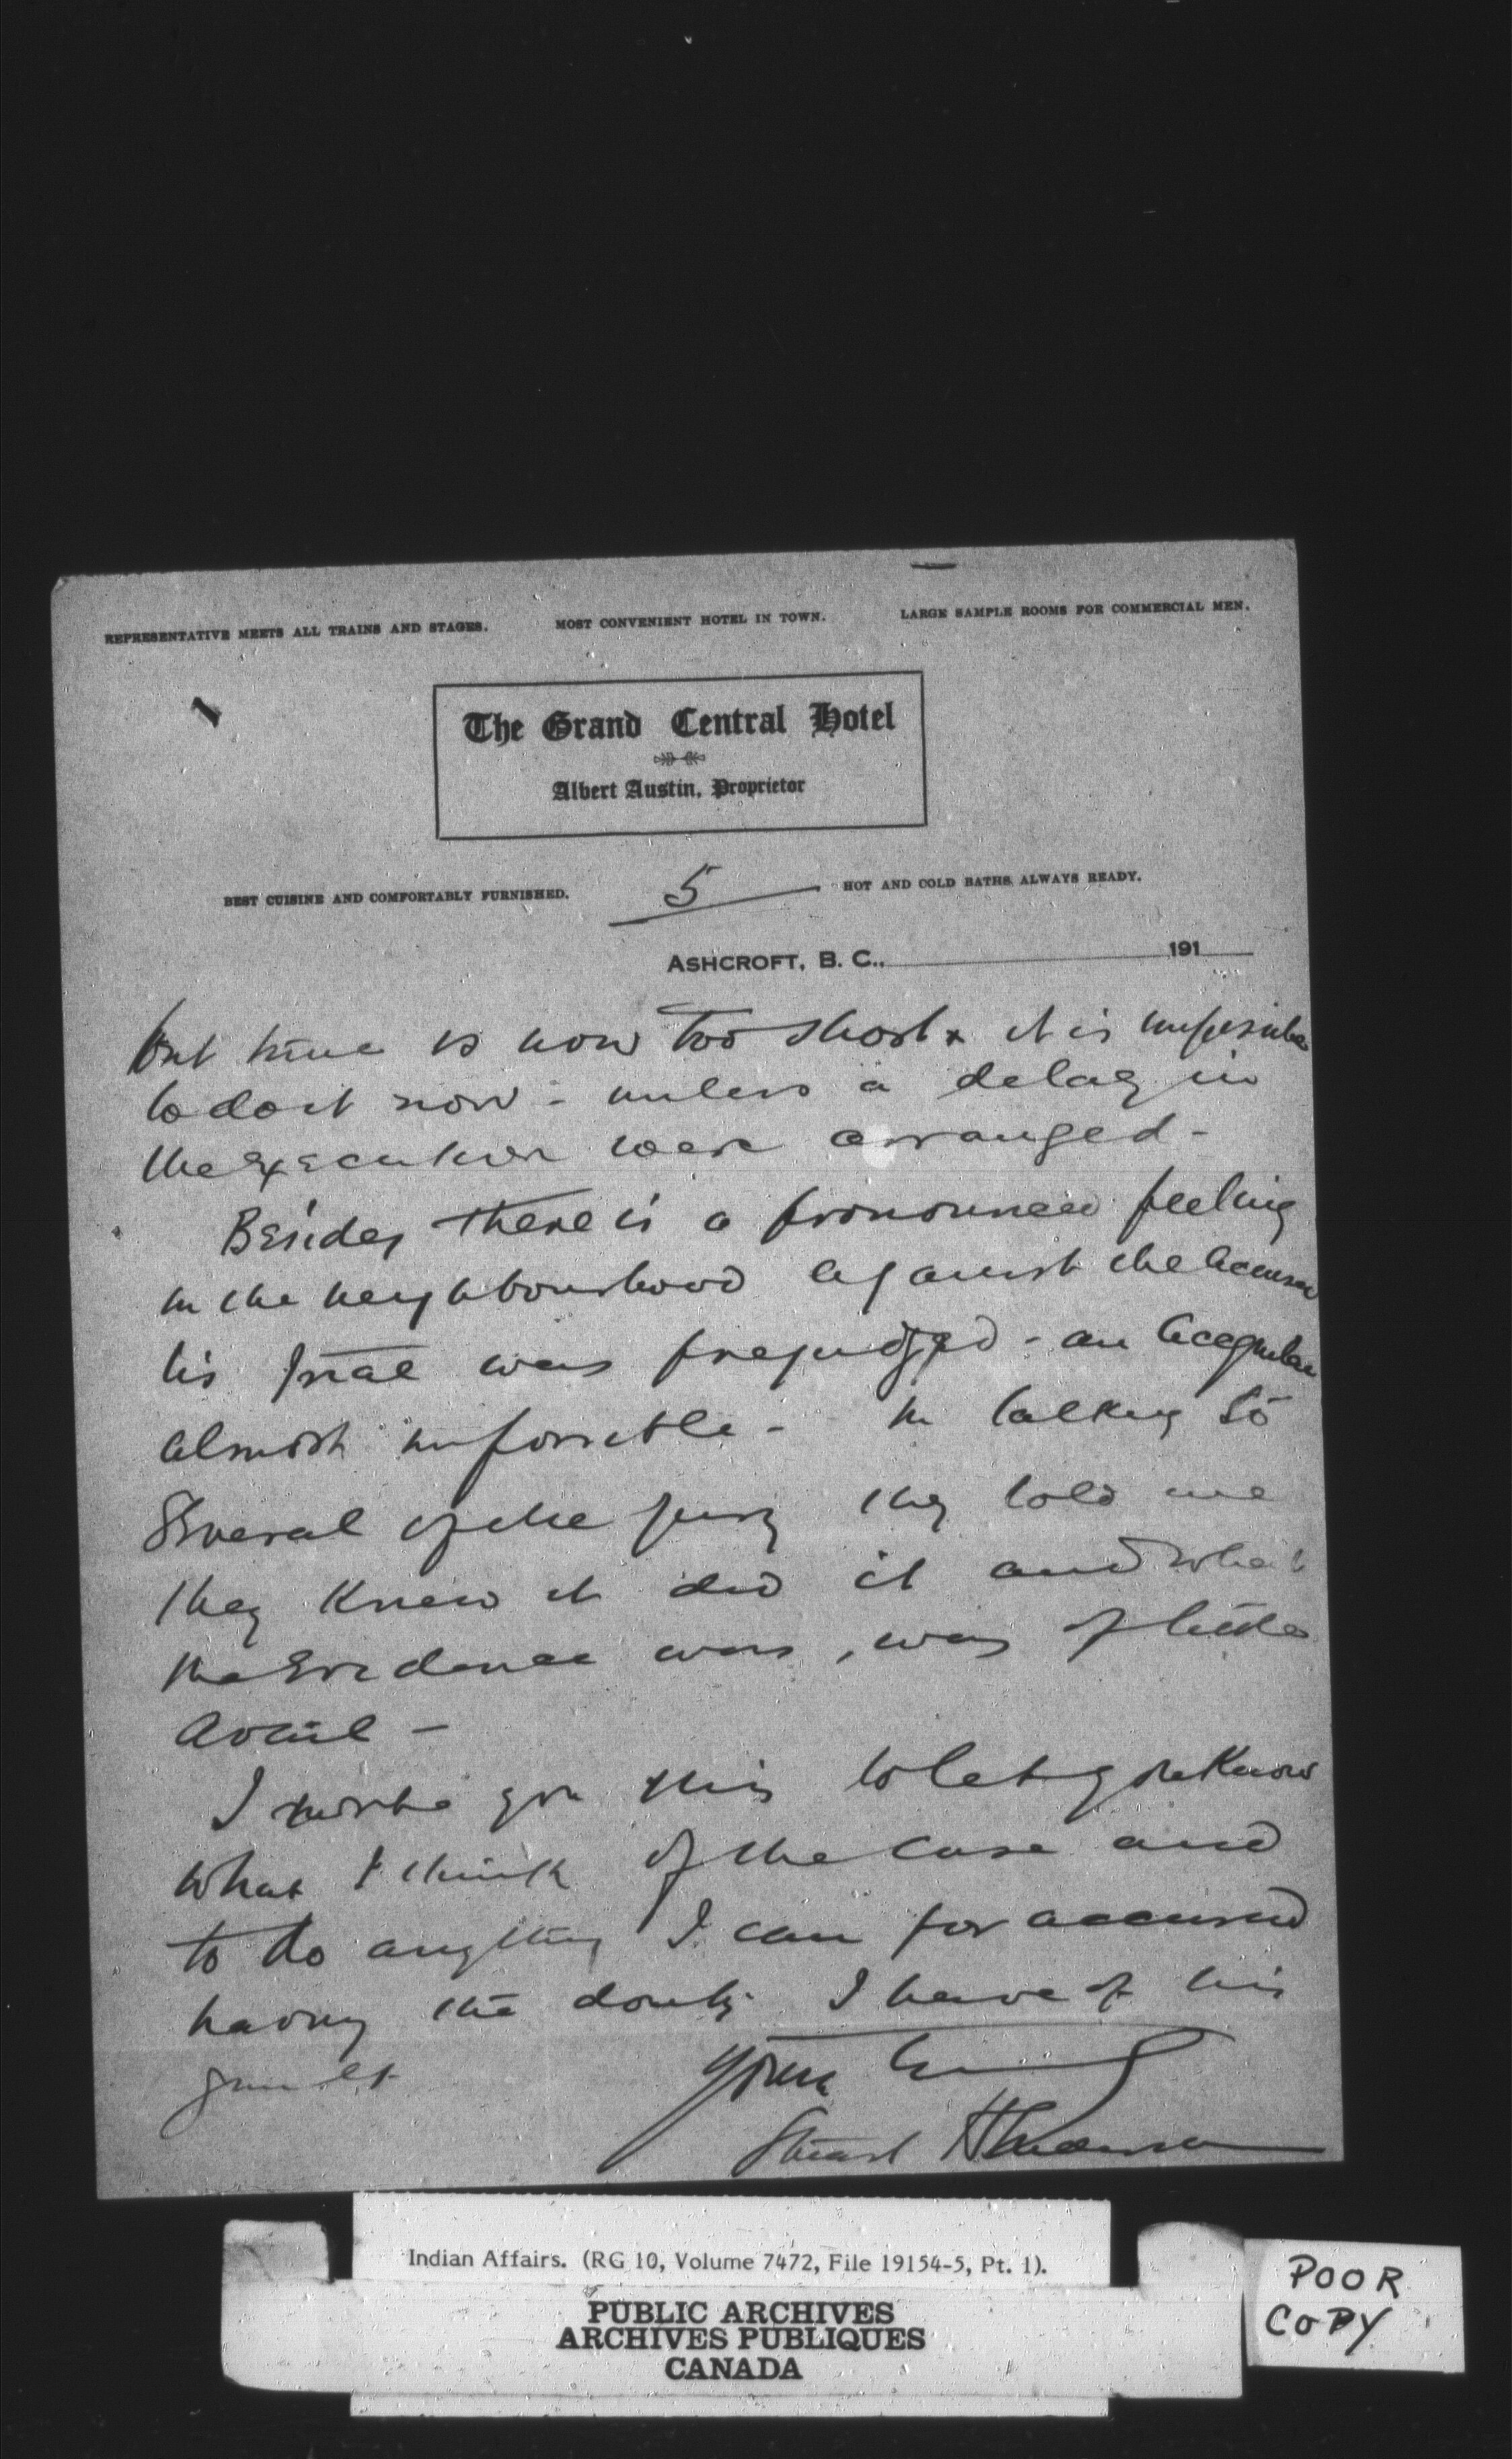 REPRESENTATIVE MEETS ALL TRAINS AND STAGES. MOST CONVENIENT HOTEL IN TOWN. LARGE SAMPLE ROOMS FOR COMMERCIAL MEN.
1
The Grand Central Hotel
Albert Austin, Proprietor
BEST CUISINE AND COMFORTABLY FURNISHED. 5 HOT AND COLD BATHS ALWAYS READY.
ASHCROFT, B. C., 191
but time is now too short & it is impossible
to do it now - unless a delay in
the execution were arranged -
Besides there is a pronounced feeling
in the neighbourhood against the accused
his trial was prejudged - an acquittal
almost impossible - In talking to
several of the jury they told me
they knew it did it and what
the evidence was, was of little
avail -
I write you this to let you know
what I think of the case and
to do anything I can for accused
having the doubts I have of his
guilt
Yours
Stuart Henderson
Indian Affairs. (RG 10, Volume 7472, File 19154-5, Pt. 1).
PUBLIC ARCHIVES
ARCHIVES PUBLIQUES
CANADA
POOR
COPY